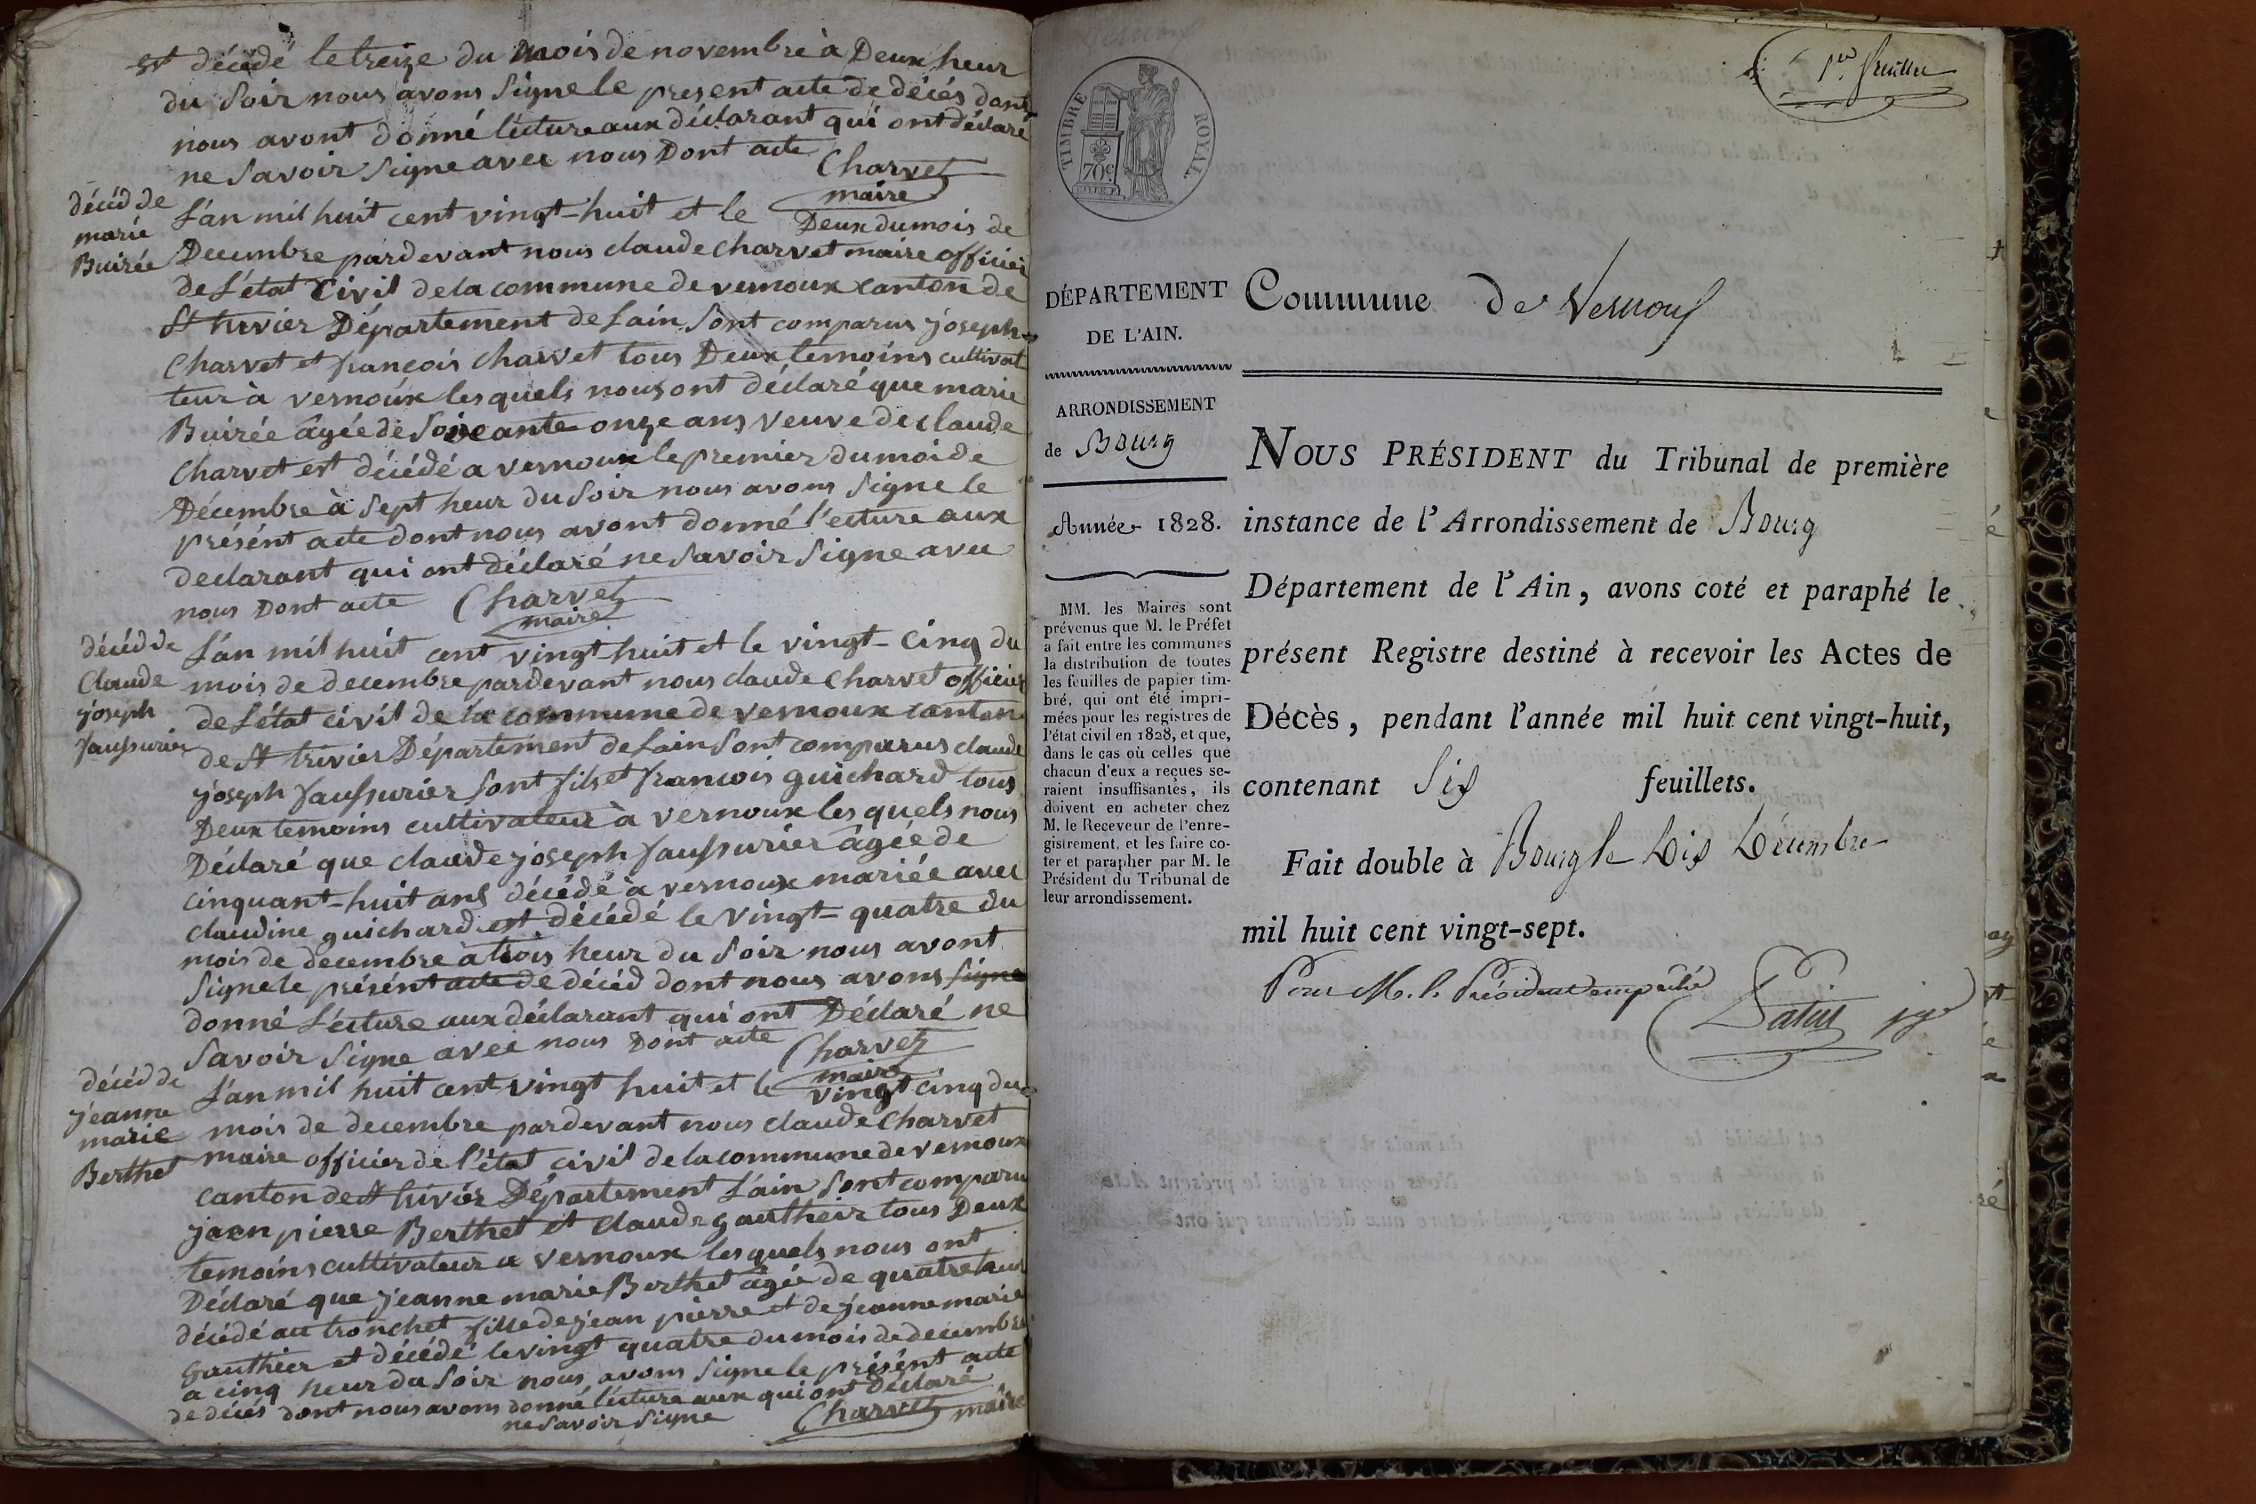 est décédé le treize du mois de novembre à Deux heur
du Soir nous avons Signe le present acte de décés dont
nous avont donné lécture aux déclarant qui ont déclaré
ne Savoir Signe avec nous Dont acte
Charvet
maire
décéd de
marie
Buirée
L'an mil huit cent vingt-huit et le Deux du mois de
Decembre pardevant nous claude charvet maire officier
de L'état Civil de la commune de vernoux canton de
St trivier Département de Lain Sont comparus joseph
Charvet et françois charvet tous Deux temoins cultivat
teur à vernoux les quels nous ont déclaré que marie
Buirée âgée de Soixcante onze ans veuve de claude
Charvet est décédé a vernoux le premier du moi de
Décembre à Sept heur du Soir nous avons Signe le
présént acte dont nous avont donné l'ecture aux
declarant qui ont déclaré ne Savoir Signe avec
nous Dont acte
Charvet
maire
décéd de
Claude
joseph
faussurier
L'an mil huit cent vingt-huit et le vingt-Cinq du
mois de decembre pardevant nous claude Charvet officier
de L'état civil de la commune de vernoux canton
de St trivier Département de Lain Sont comparus claude
joseph faussurier Sont fils et francois guichard tous
Deux temoins cultivateur à vernoux les quels nous
Déclaré que claude joseph faussurier âgée de
cinquant-huit ans décédé à vernoux mariée avec
claudine guichard est décédé le vingt-quatre du
mois de decembre à trois heur du Soir nous avont
Signe le présént acte de décéd dont nous avons signe
donné L'ecture aux déclarant qui ont Déclaré ne
Savoir Signe avec nous Dont acte
Charvet
maire
décéd de
jeanne
marie
Berthet
L'an mil huit cent vingt huit et le vingt cinq du
mois de decembre pardevant nous claude Charvet
maire officier de l'état civil de la commune de vernoux
canton de St trivier Département L'ain Sont comparu
jaen pierre Berthet et claude gautheir tous Deux
temoins cultivateur a vernoux les quels nous ont
Déclaré que jeanne marie Berthet âgée de quatre heur
décédé au tronchet fille de jean pierre et de jeanne marie
Gauthier et décédé le vingt quatre du mois de decembre
a cinq heur du Soir nous avons Signe le présént acte
de décés dont nous avons donné lécture aux qui ont Déclaré
ne Savoir Signe
Charvet maire
1er feuillet
TIMBRE ROYAL
70c
DÉPARTEMENT
DE L'AIN.
ARRONDISSEMENT
de Bourg
Année 1828.
MM. les Maires sont
prévenus que M. le Préfet
a fait entre les communes
la distribution de toutes
les feuilles de papier tim-
bré, qui ont été impri-
mées pour les registres de
l'état civil en 1828, et que,
dans le cas où celles que
chacun d'eux a reçues se-
raient insuffisantes, ils
doivent en acheter chez
M. le Receveur de l'enre-
gistrement, et les faire co-
ter et parapher par M. le
Président du Tribunal de
leur arrondissement.
Commune De Vernoux
NOUS PRÉSIDENT du Tribunal de première
instance de l'Arrondissement de Bourg
Département de l'Ain, avons coté et paraphé le
présent Registre destiné à recevoir les Actes de
Décès, pendant l'année mil huit cent vingt-huit,
contenant Six feuillets.
Fait double à Bourg le Dix Décembre
mil huit cent vingt-sept.
Pour M. le Président empeché